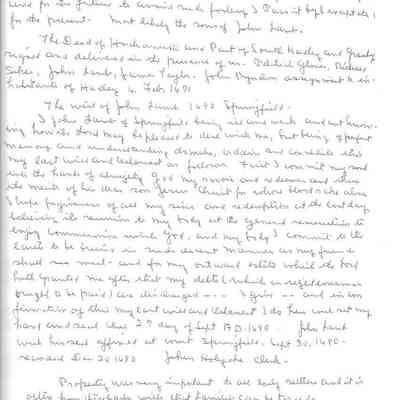 for the present. Most likely the son of John Lamb.
The Deed of and Part of South Hadley and Granby
signed and delivered in the presence of us. Pelatiah Glover,
John Lamb, James Taylor. John Pynchon assignment to in-
habitants of Hadley 4. Feb. 1691
The will of John Lamb 1690 Springfield.
I John Lamb of Springfield being and weak and not know-
ing how the Lord may be pleased to deal with me, but being of perfect
memory and understanding do make, ordain and constitute this
my last will and testament as follows. First I commit my soul
into the hands of almighty God my savior and redeemer and
the merits of his dear son Jesus Christ for whose blood sake alone
I hope forgiveness of all my sins and redemption at the last day
believing its reunion to my body at the general resurrection to
enjoy communion with God, and my body I commit to the
earth to be buried in such decent manner as my friends
shall see meet - and for my outward estate which the Lord
hath granted me after that my debts (which in
ought to be paid) are discharged --- I give -- and in con
firmation of this my last will and testament I do here unto set my
hand and seal this 27 day of Sept AD. 1690. John Lamb
will his seal affixed at court Springfield, Sept 30, 1690.
recorded Dec 20 1690 John Holyoke Clerk.
Property was very important to all early settlers and it is
often